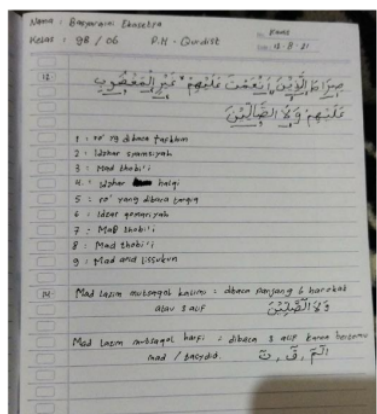 Nama : Basyararni Ekasetra
Kelas : 9B / 06 P.H - Qurdist
No.
Date. 13 - 8 - 21
13 صِرَاطَ الَّذِيْنَ اَنْعَمْتَ عَلَيْهِمْ غَيْرِ الْمَغْضُوْبِ
عَلَيْهِمْ وَلَا الضَّالِّيْنَ
1 : ro' yg dibaca tafkhim
2 : Idzhar syamsiyah
3 : Mad thobi'i
4 : Idzhar halqi
5 : ro' yang dibaca tarqiq
6 : Idzar qomariyah
7 : Mad thobi'i
8 : Mad thobi'i
9 : Mad arid lissukun
14. Mad Lazim mutsaqol kalimi : dibaca panjang 6 harokat
atau 3 alif وَلَا الضَّالِّيْنَ
Mad Lazim mutsaqal harfi : dibaca 3 alif karna bertemu
mad / tasydid. الٓمٓ ، قٓ ، نٓ